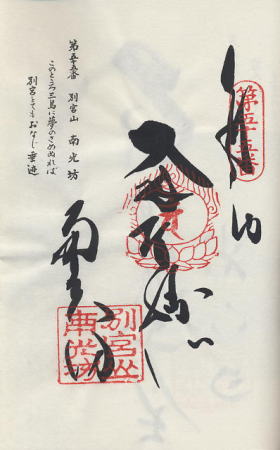 奉納
第五十五番
南光坊
別宮山
南光坊
第五十五番 別宮山 南光坊
このところ三島に夢のさめぬれば
別宮とても おなじ垂迹